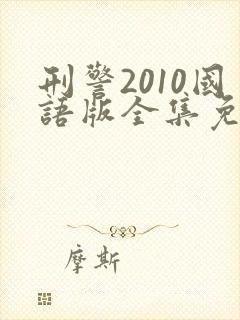 刑警2010國
語版全集免
摩斯